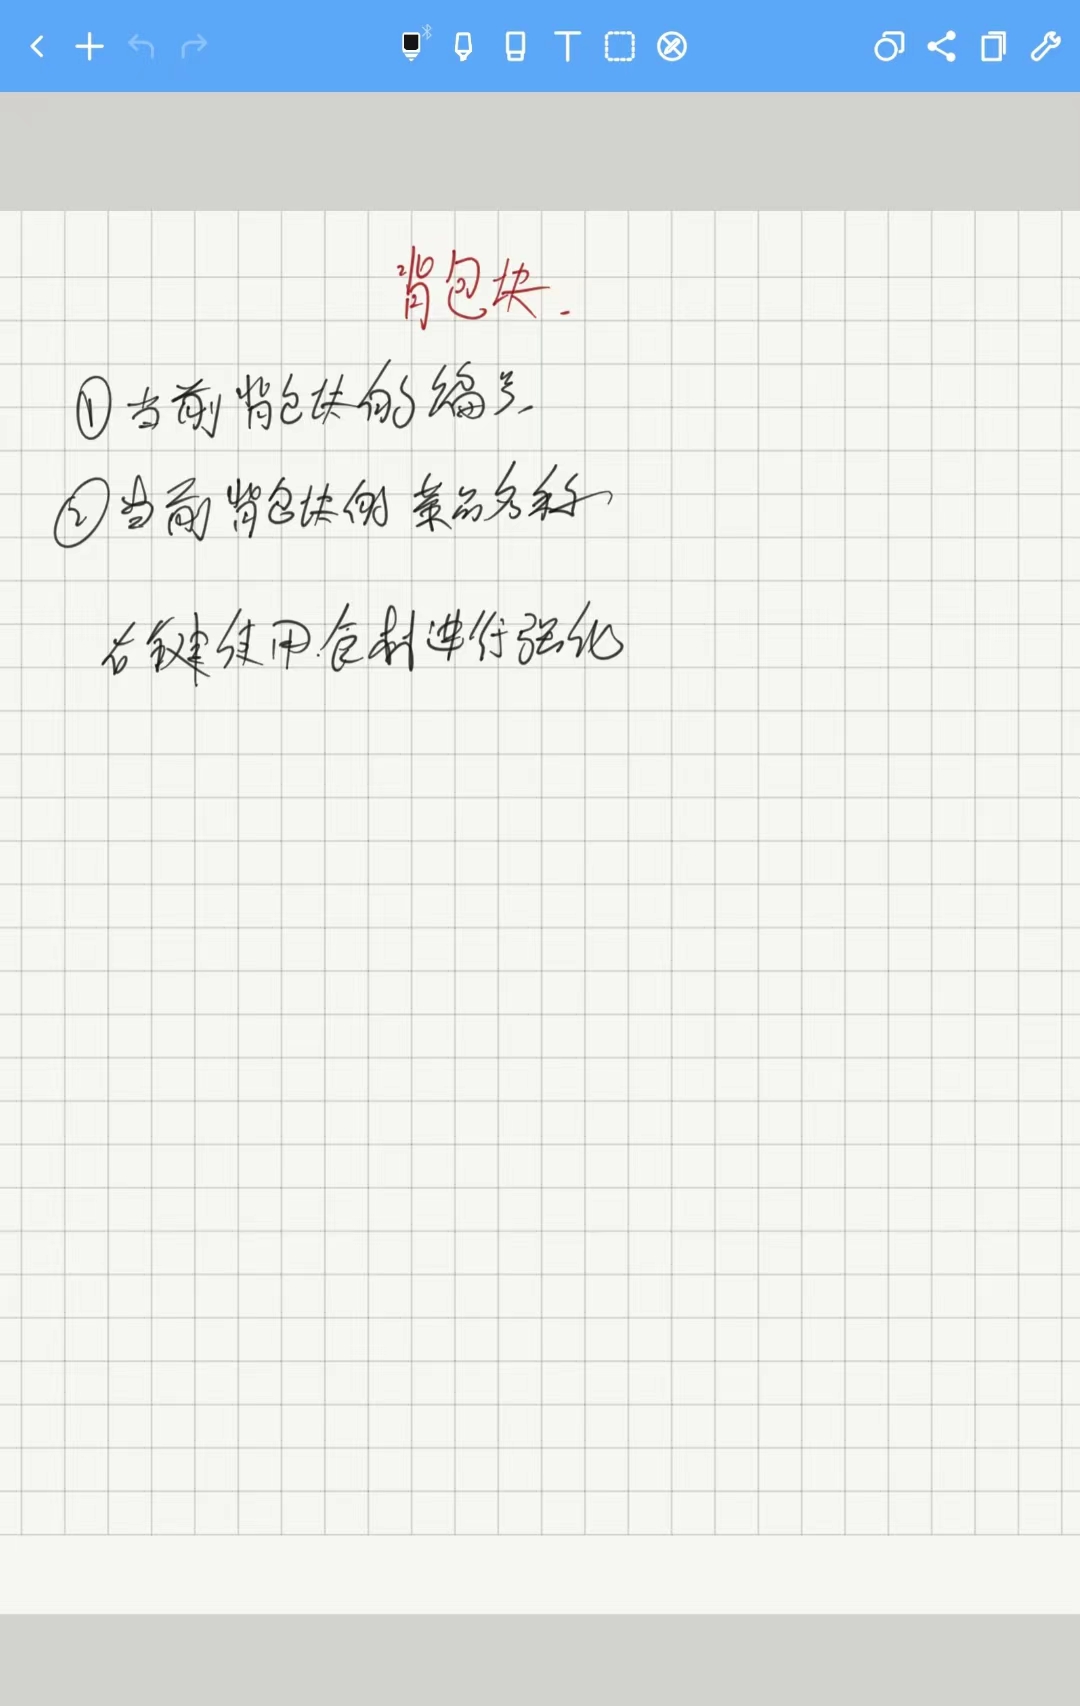 背包块.
①当前背包块的编号
②当前背包块的菜品名称
右键使用食材进行强化